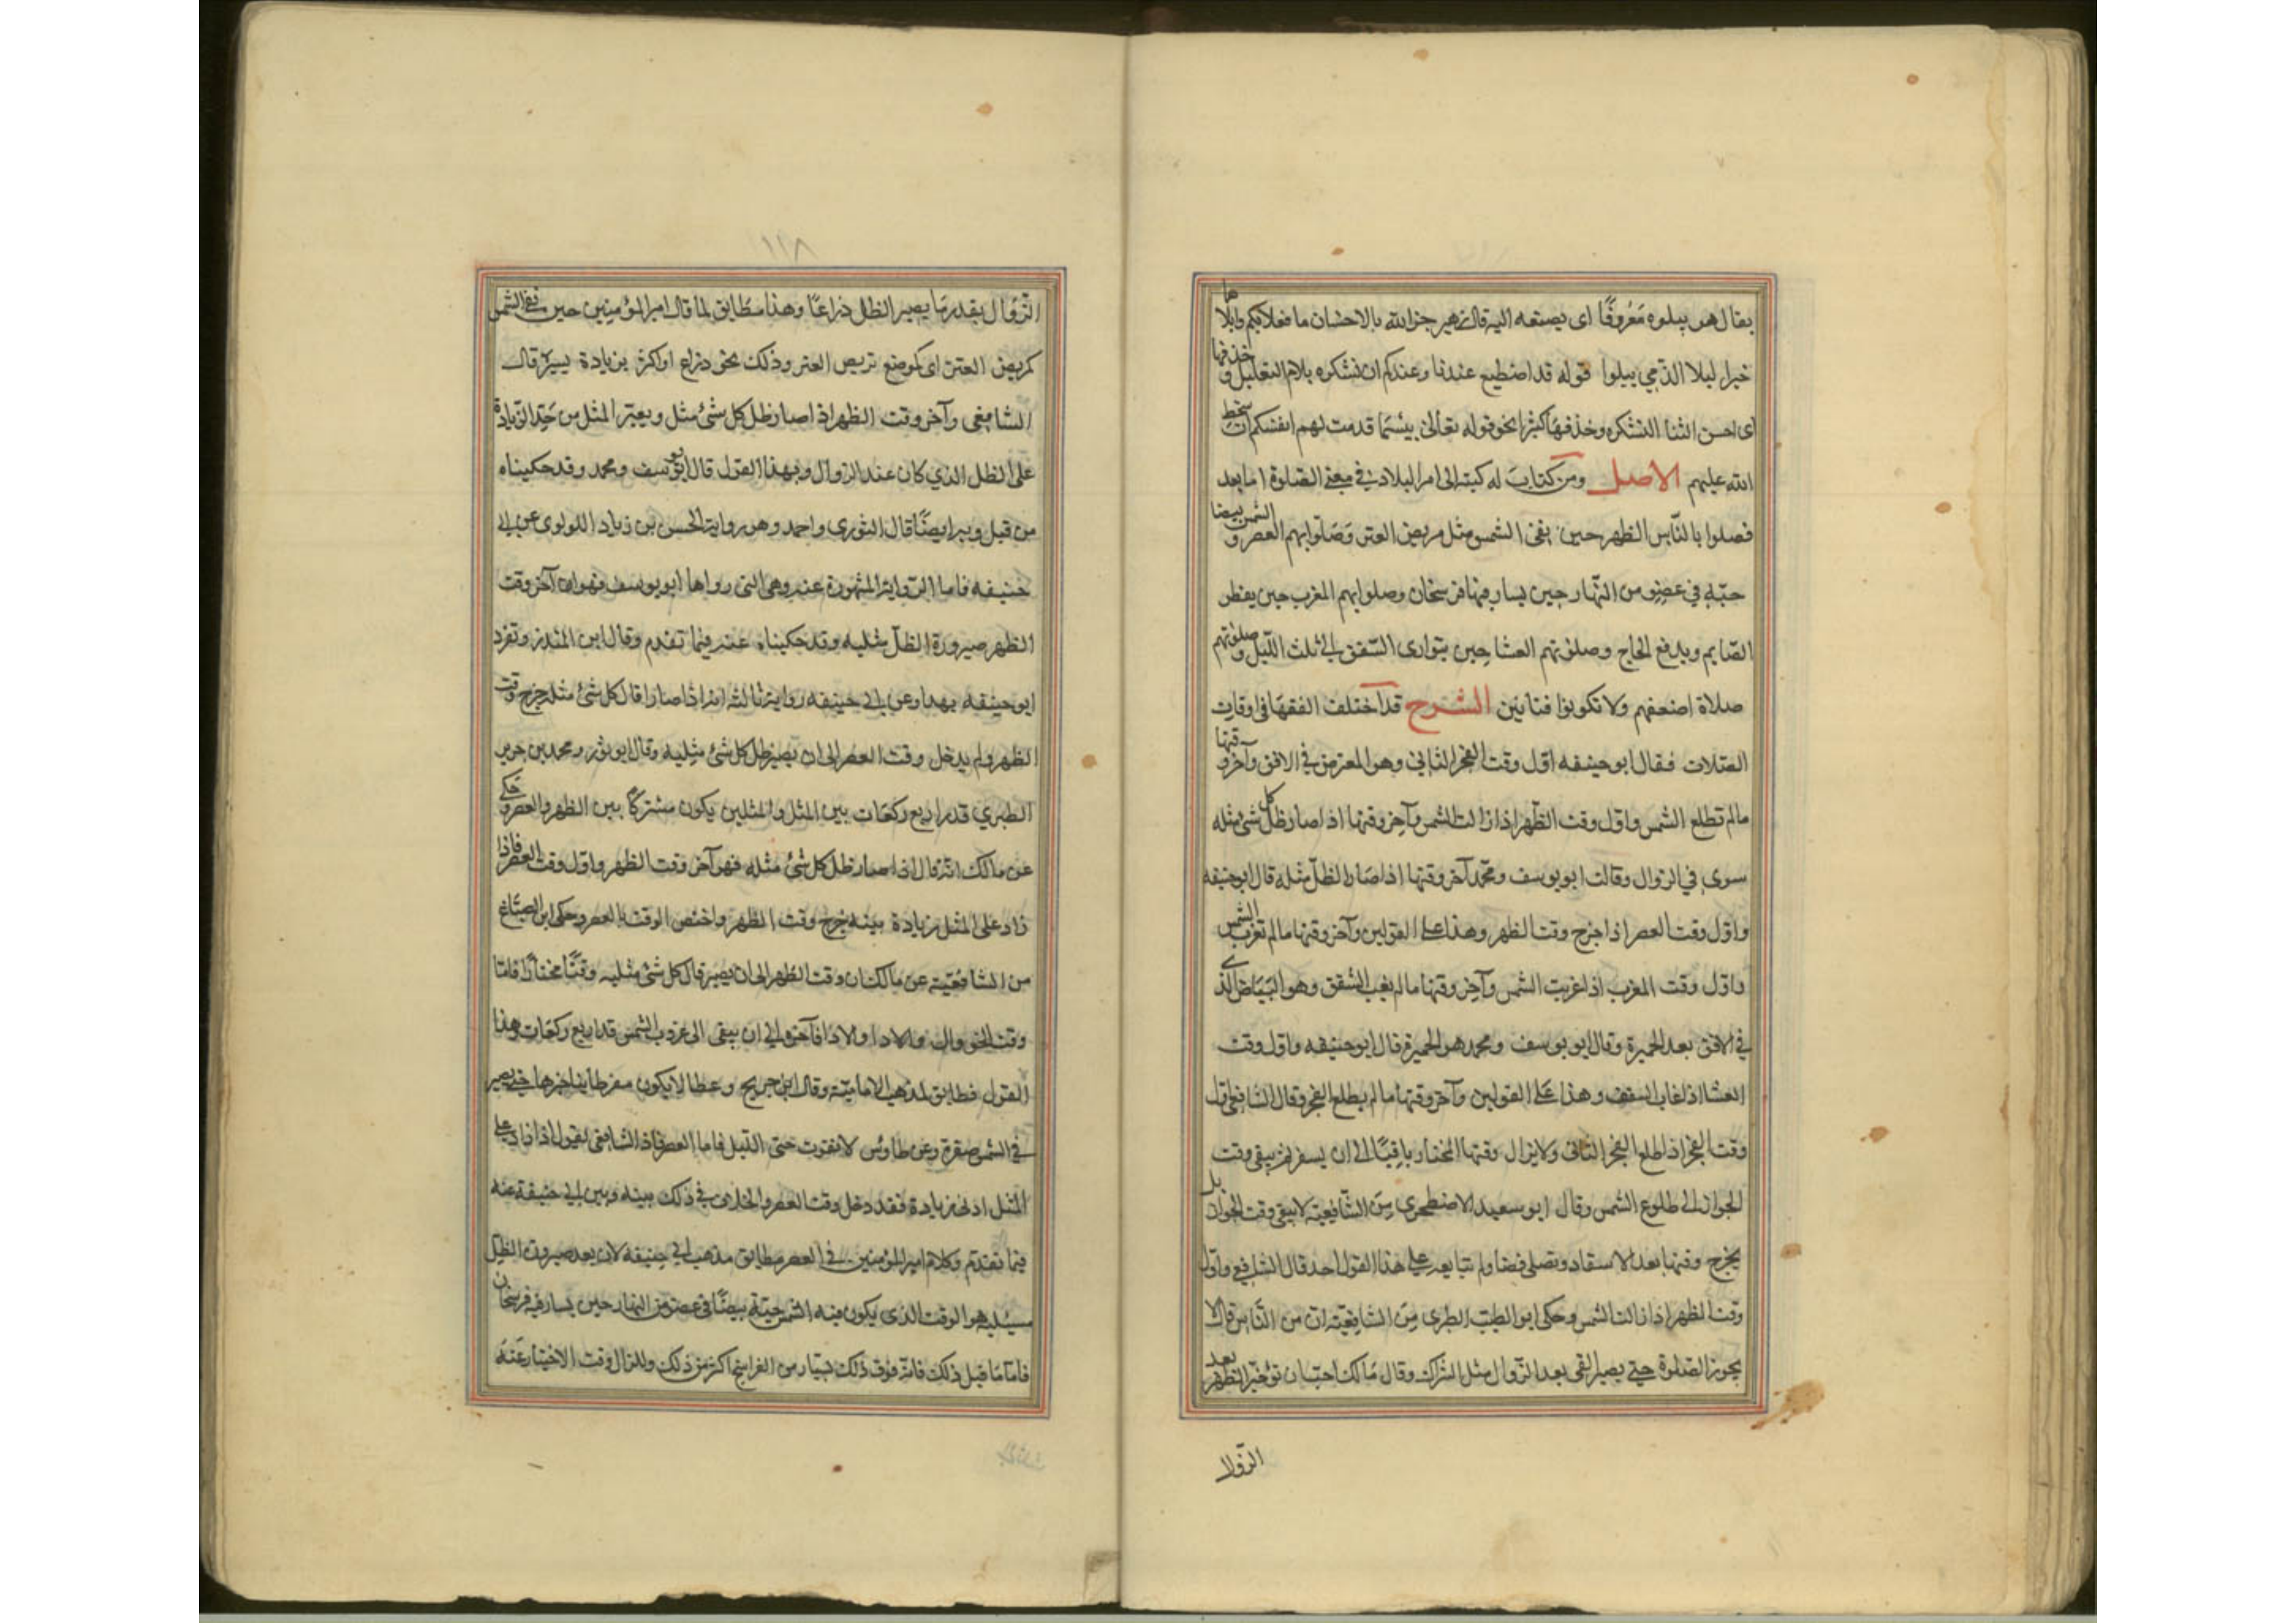 يقال هو يبلوه مَعْروفًا اى يصنعه اليه قال زهير جزا الله بالاحسان ما فعلا بكم وابلا
ها
خير البلا الذي يبلوا قوله قد اصطنع عندنا وعندكم ان نشكره بلام التعليل و
حذفها
اى احسن الثنا لنشكره وحذفها كثير نحو قوله تعالى بيسما قدمت لهم انفسكم ان
سخط
الله عليهم الاصل ومن كتاب له كتبه الى امرا البلاد في معنى الصلوة اما بعد
فصلوا بالنّاس الظهر حين تفئ الشمس مثل مربض العنز وَصَلّوا بهم العصر و
الشمس بيضا
حيّة في عضو من النّهار حين يسار فيها فرسخان وصلوا بهم المغرب حين يفطر
الصّايم ويدفع الحاج وصلوا بهم العشا حين يتوارى الشفق الى ثلث اللّيل و
صلوا بهم
صلاة اضعفهم ولا تكونوا فتانين الشرح قد اختلف الفقهَا في اوقات
الصّلات فقال ابو حنيفه اوّل وقت الفجر الثاني وهو المعترض في الافق وآخر و
قتها
مالم تطلع الشمس واوّل وقت الظّهر اذا زالت الشمس وآخر وقتها اذا صار ظلّ كل شئ مثله
سوى في الزوال وقالت ابو يوسف ومحمّد آخر وقتها اذا صَار الظلّ مثله قال ابو حنيفه
واوّل وقت العصر اذا خرج وقت الظهر وهذا على القولين وآخر وقتها مالم تغرب
الشمس
واوّل وقت المغرب اذا غربت الشمس وآخر وقتها مالم يغب الشفق وهو البَيَاض الذ
ي
في الافق بعد الحمرة وقال ابو يوسف ومحمد هو الحمرة قال ابو حنيفه واوّل وقت
العشا اذا غاب الشفق وهذا عَلى القولين وآخر وقتها مالم يطلع الفجر وقال الشافعي اوّل
وقت الفجر اذا طلع الفجر الثاني ولا يزال وقتها المختار باقيًا الى ان يسفر ثم يبقى وقت
الجواز الى طلوع الشمس وقال ابو سعيد الاصطخرى مِنَ الشّافعيّة لا يبقى وقت الجواز
بل
يخرج وقتها بعد الاسفار وتصلى قضا ولم يتابعه على هذا القول احد قال الشافعي واوّل
وقت الظهر اذا زالت الشمس وحكى ابو الطيّب الطبرى مِنَ الشافعيّة ان من النّاس قال لا
يجوز الصّلوة حتى يصير الفئ بعد الزّوال مثل الشراك وقال مَالك احبّ ان تؤخّر الظهر
بعد
الزّوال
١١٨
الزّوال بقدر ما يصير الظل ذراعًا وهذا مطابق لما قال امير المؤمنين حين تفئ الشمس
كمربض العنز اى كموضع تربض العنز وذلك نحو ذراع او اكثر بزيادة يسيرة قال
الشافعى وآخر وقت الظهر اذا صار ظل كل شئ مثله ويعتبر المثل من حَدّ الزّيادة
على الظل الذي كان عند الزوال وبهذا القول قال ابو يوسف ومحمد وقد حكيناه
من قبل وبه ايضًا قال الثورى واحمد وهو رواية الحسن بن زياد اللولوى عن ابى
حنيفه فاما الرّواية المشهورة عنه وهي التى رواها ابو يوسف فهو ان آخر وقت
الظهر صيرورة الظلّ مثليه وقد حكيناه عنه فيما تقدم وقال ابن المنذر وتفرد
ابو حنيفه بهذا وعن ابي حنيفه رواية ثالثه انه اذا صار ظل كل شئ مثله خرج وقت
الظهر ولم يدخل وقت العصر الى ان يصير ظل كل شئ مثليه وقال ابو ثور ومحمد بن جرير
الطبري قدر اربع ركعَات بين المثل والمثلين يكون مشتركًا بين الظهر والعصر و
حكى
عن مالك انّه قال اذا صار ظل كل شئ مثله فهو آخر وقت الظهر واوّل وقت العصر
فاذا
زاد على المثل زيادة بينه خرج وقت الظهر واختص الوقت بالعصر وحكى ابن الصبّاغ
من الشافعيّة عن مالك ان وقت الظهر الى ان يصير ظل كل شئ مثليه وقتًا مختارًا فامّا
وقت الجواز والادا فآخره الى ان يبقى الى غروب الشمس قدر اربع ركعَات وهذا
القول مطابق لمذهب الاماميّة وقال ابن جريج وعطا لا يكون مفرطا بتاخيرها حتى يصير
في الشمس صفرة وعن طاوس لا تفوت حتى الليل فاما العصر فان الشافعى يقول اذا زاد على
المثل ادنى زيادة فقد دخل وقت العصر والخلاف في ذلك بينه وبين ابي حنيفة عنه
فيما تقدّم وكلام امير المؤمنين في العصر مطابق مذهب ابي حنيفه لان بعد صيرورة الظلّ
مثليه هو الوقت الذى يكون فيه الشمس حيّة بيضًا في عضو من النهار حين يسار فيه فرسخان
فامّا مَا قبل ذلك فانّه فوق ذلك يسار من الفراسخ اكثر من ذلك ولا يزال وقت الاختيار عنْهُ